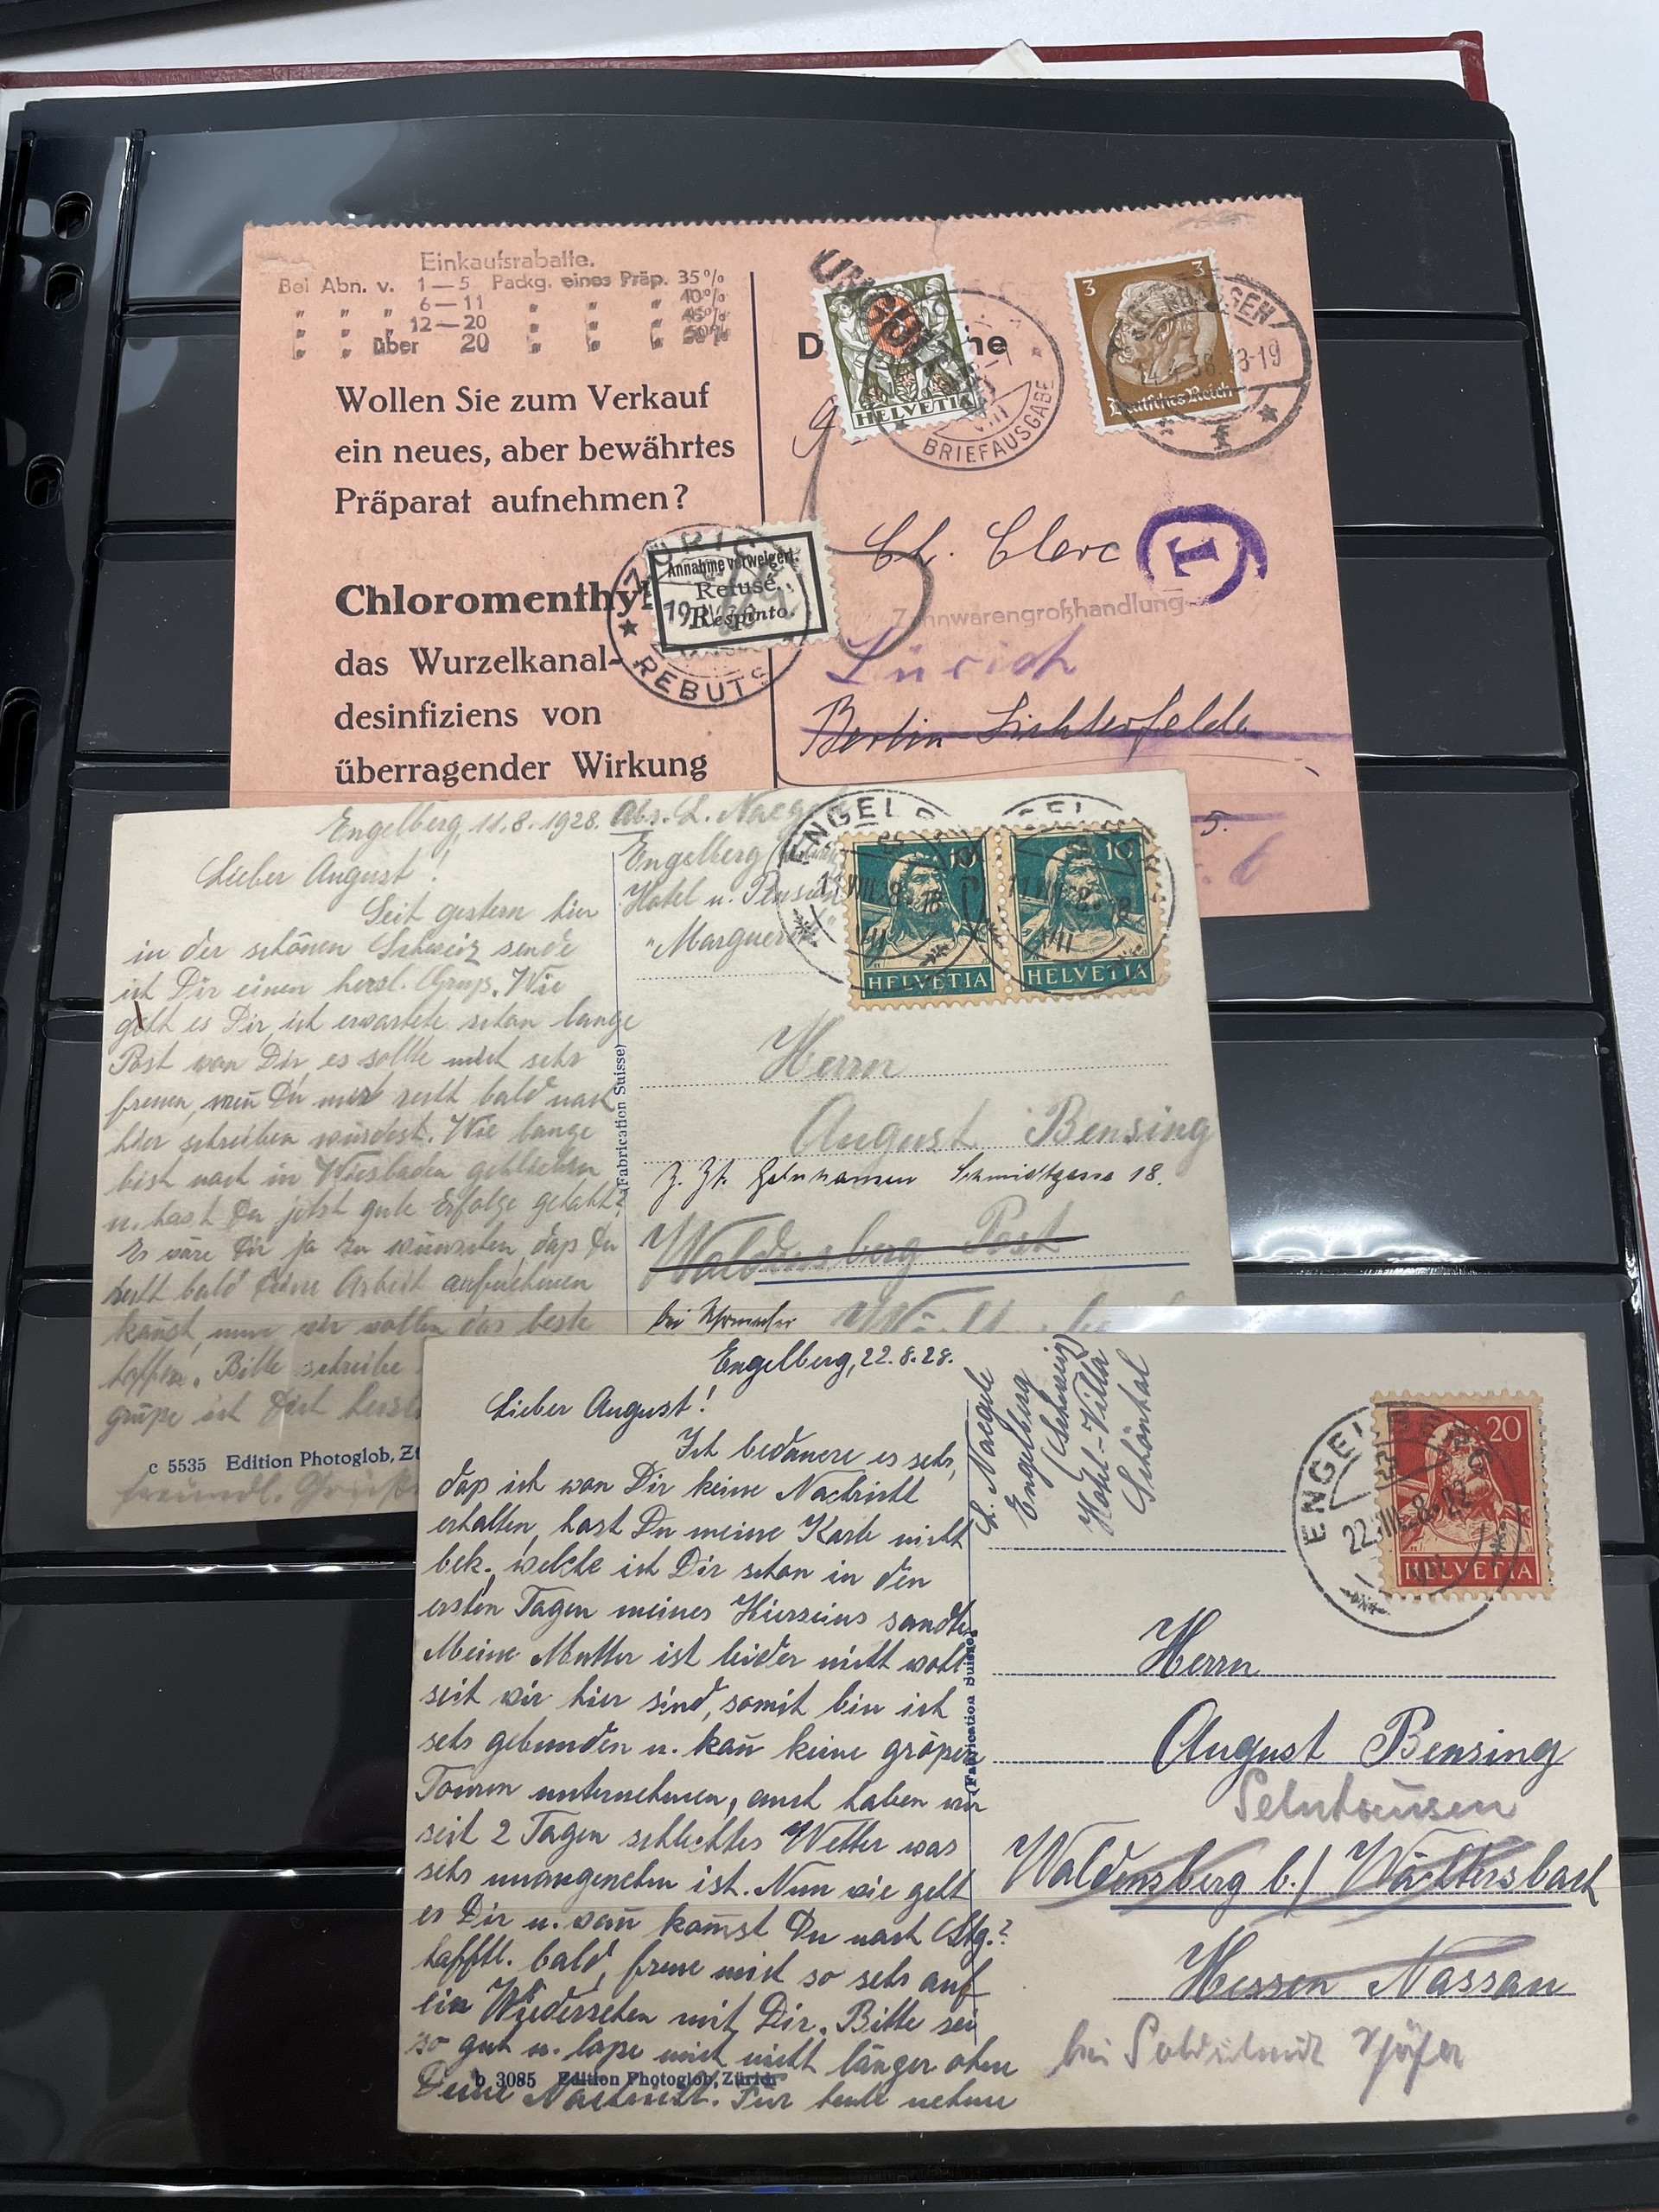 Einkaufsrabatte.
Bei Abn. v. 1—5 Packg. eines Präp. 35%
„ „ „ 6—11 „ „ „ 40%
„ „ „ 12—20 „ „ „ 45%
„ „ über 20 „ „ „ 50%
Wollen Sie zum Verkauf
ein neues, aber bewährtes
Präparat aufnehmen?
Chloromenthyl
das Wurzelkanal-
desinfiziens von
überragender Wirkung
HELVETIA
BRIEFAUSGABE
3
3
Deutsches Reich
14.4.38.18-19
Annahme verweigert.
Refusé.
Respinto.
REBUTS
T
Ch. Clerc
Zahnwarengroßhandlung
Zürich
Berlin-Lichterfelde
5.
Engelberg, 11.8.1928.
Lieber August!
Seit gestern hier
in der schönen Schweiz sende
ich Dir einen herzl. Gruß. Wie
geht es Dir, ich erwartete schon lange
Post von Dir, es sollte mich sehr
freuen, weñ Du mir recht bald nach
hier schreiben würdest. Wie lange
bist noch in Wiesbaden geblieben
u. hast Du jetzt gute Erfolge gehabt?
Es wäre Dir ja zu wünschen, daß Du
recht bald Deine Arbeit aufnehmen
kañst, nun wir wollen das beste
hoffen. Bitte schreibe
grüße ich Dich herzl
c 5535 Edition Photoglob, Zü
freundl. Grüße
Abs. L. Naeg
Engelberg
Hotel u. Pension
"Marguerite"
ENGELB
10
10
HELVETIA
HELVETIA
(Fabrication Suisse)
Herrn
August Bensing
z. Zt. Gelnhausen Schmidtgasse 18.
Waldensberg Post
bei
Engelberg, 22.8.28.
Lieber August!
Ich bedauere es sehr,
daß ich von Dir keine Nachricht
erhalten, hast Du meine Karte nicht
bek., welche ich Dir schon in den
ersten Tagen meines Hierseins sandte.
Meine Mutter ist leider nicht wohl
seit wir hier sind, somit bin ich
sehr gebunden u. kañ keine größere
Touren unternehmen, auch haben wir
seit 2 Tagen schlechtes Wetter was
sehr unangenehm ist. Nun wie geht
es Dir u. wañ kommst Du nach Stg.?
hofftl. bald, freue mich so sehr auf
ein Wiedersehen mit Dir. Bitte sei
so gut u. laße mich nicht länger ohne
Deine Nachricht. Für heute nehme
b 3085 Edition Photoglob, Zürich
L. Naegele
Engelberg
(Schweiz)
Hotel-Villa
Schöntal
ENGELBERG
20
HELVETIA
(Fabrication Suisse)
Herrn
August Bensing
Gelnhausen
Waldensberg b./ Wächtersbach
Hessen Nassau
bei Goldschmidt